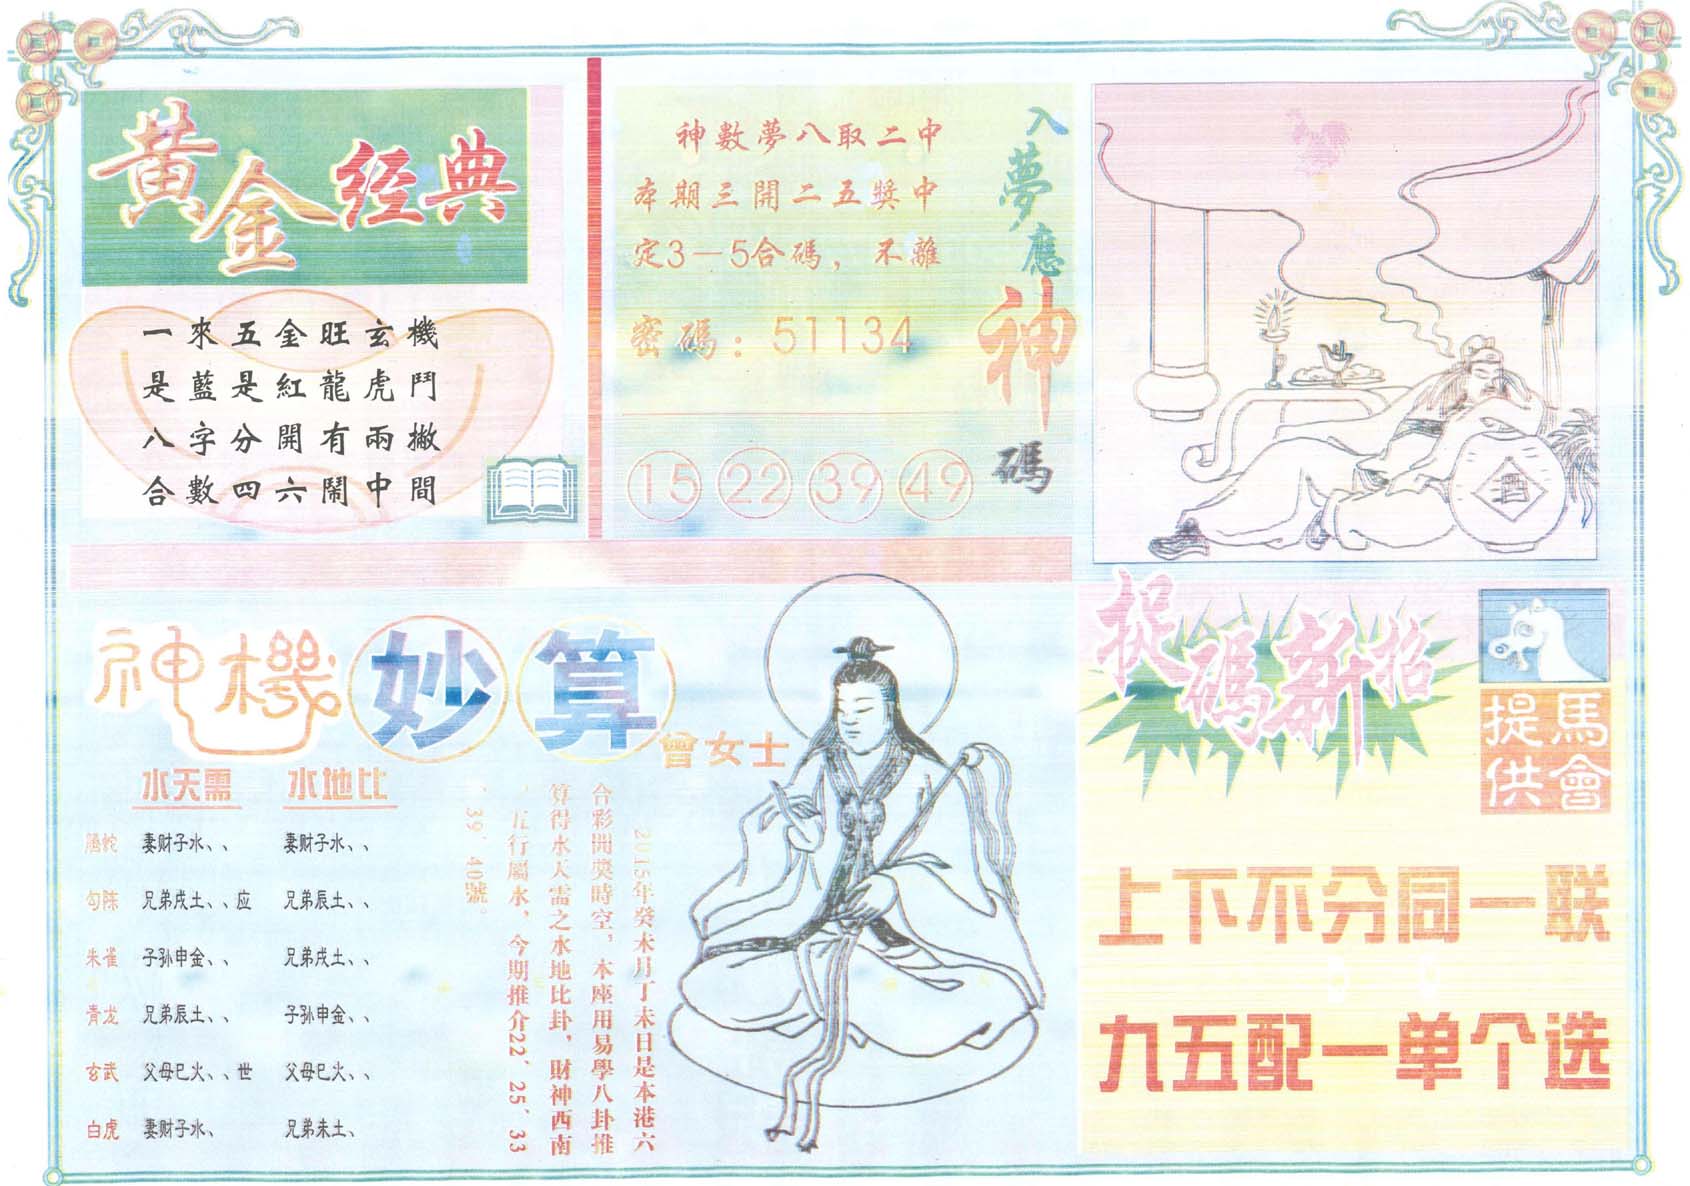 黄金经典
一來五金旺玄機
是藍是紅龍虎鬥
八字分開有兩撇
合數四六鬧中間
神數夢八取二中
本期三開二五獎中
定3－5合碼，不離
密碼：51134
15 22 39 49
入夢應神碼
酒
神機妙算
曾女士
水天需 水地比
螣蛇 妻财子水、、 妻财子水、、
勾陈 兄弟戌土、、应 兄弟辰土、、
朱雀 子孙申金、、 兄弟戌土、、
青龙 兄弟辰土、、 子孙申金、、
玄武 父母巳火、、世 父母巳火、、
白虎 妻财子水、 兄弟未土、
2015年癸未月丁未日是本港六
合彩開獎時空，本座用易學八卦推
算得水天需之水地比卦，財神西南
，五行屬水，今期推介22、25、33
、39、40號。
捉碼新招
馬會提供
上下不分同一联
九五配一单个选